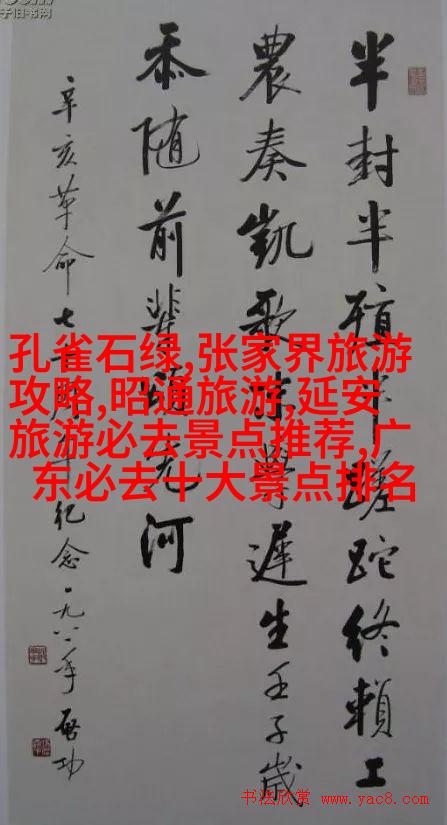 半封半殖半蹉跎终赖工
農奏凱歌學遲生壬子歲
忝随前輩河
辛亥革命七十周年纪念一九八一年啓功
孔雀石绿,张家界旅游
攻略,昭通旅游,延安
旅游必去景点推荐,广
东必去十大景点排名
书法欣赏 www.yac8.com